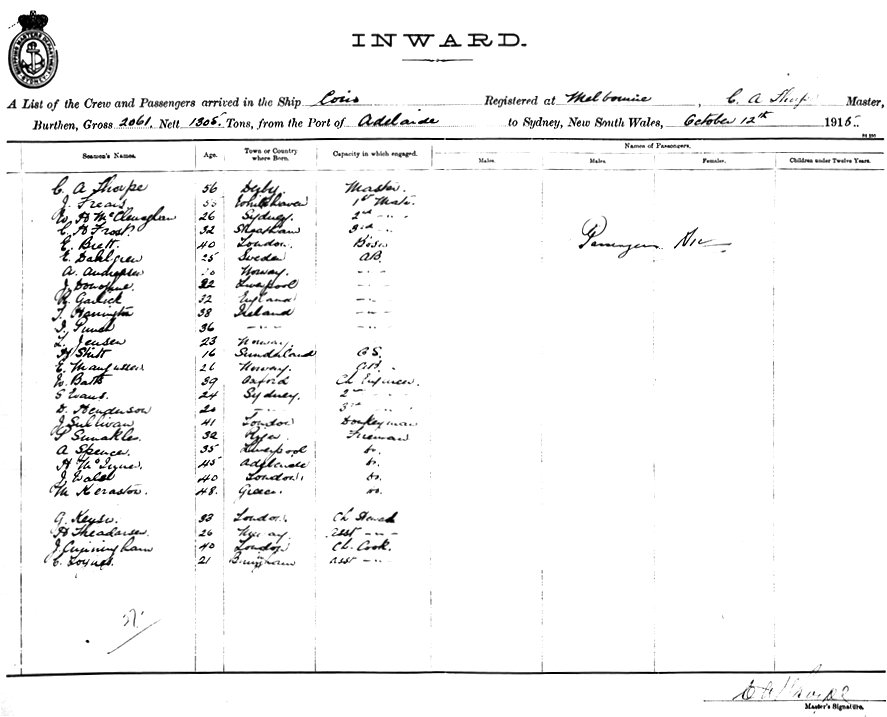 INWARD.
A List of the Crew and Passengers arrived in the Ship Registered at Melbourne, C. A Thorpe Master,
Burthen, Gross 2061, Nett 1305 Tons, from the Port of Adelaide to Sydney, New South Wales, October 12th 1915.
Names of Passengers.
Seamen's Names. Age. Town or Country where Born. Capacity in which engaged. Males. Males. Females. Children under Twelve Years.
C. A Thorpe 56 Derby Master.
J. Whitehaven 1st Mate
W. H McClenaghan 26 Sydney. 2nd " "
C H Frost. 32 3rd " "
E. Brett. 40 London. Bosn
E. Dahlgren 25 Sweden AB.
A. Andersen Norway. " "
J. Donohue. 22 Liverpool " "
R. Garlick 32 England " "
T. Harrington 38 Ireland " "
J. Punch 36 " " " "
L. Jensen 23 Norway. " "
H Stitt 16 Sunderland OS.
E. Magnussen 26 Norway. AB.
W. Batts 39 Oxford Ch Engineer.
S Evans. 24 Sydney. 2nd " "
D. Henderson " " 3rd " "
J Sullivan 41 London Donkeyman
P Sunakles. 32 Fireman
A Spence. 35 Liverpool do.
H 45 Adelaide do.
J Walsh 40 London. do.
M Keraston. 48. Greece. do.
G. Keyse. 33 London. Ch Steward
H Theadorsen 26 Norway asst " "
J. Cunningham 40 London Ch. Cook.
E. 21 Birmingham asst " "
Passengers Nil
27
C A Thorpe
Master's Signature.